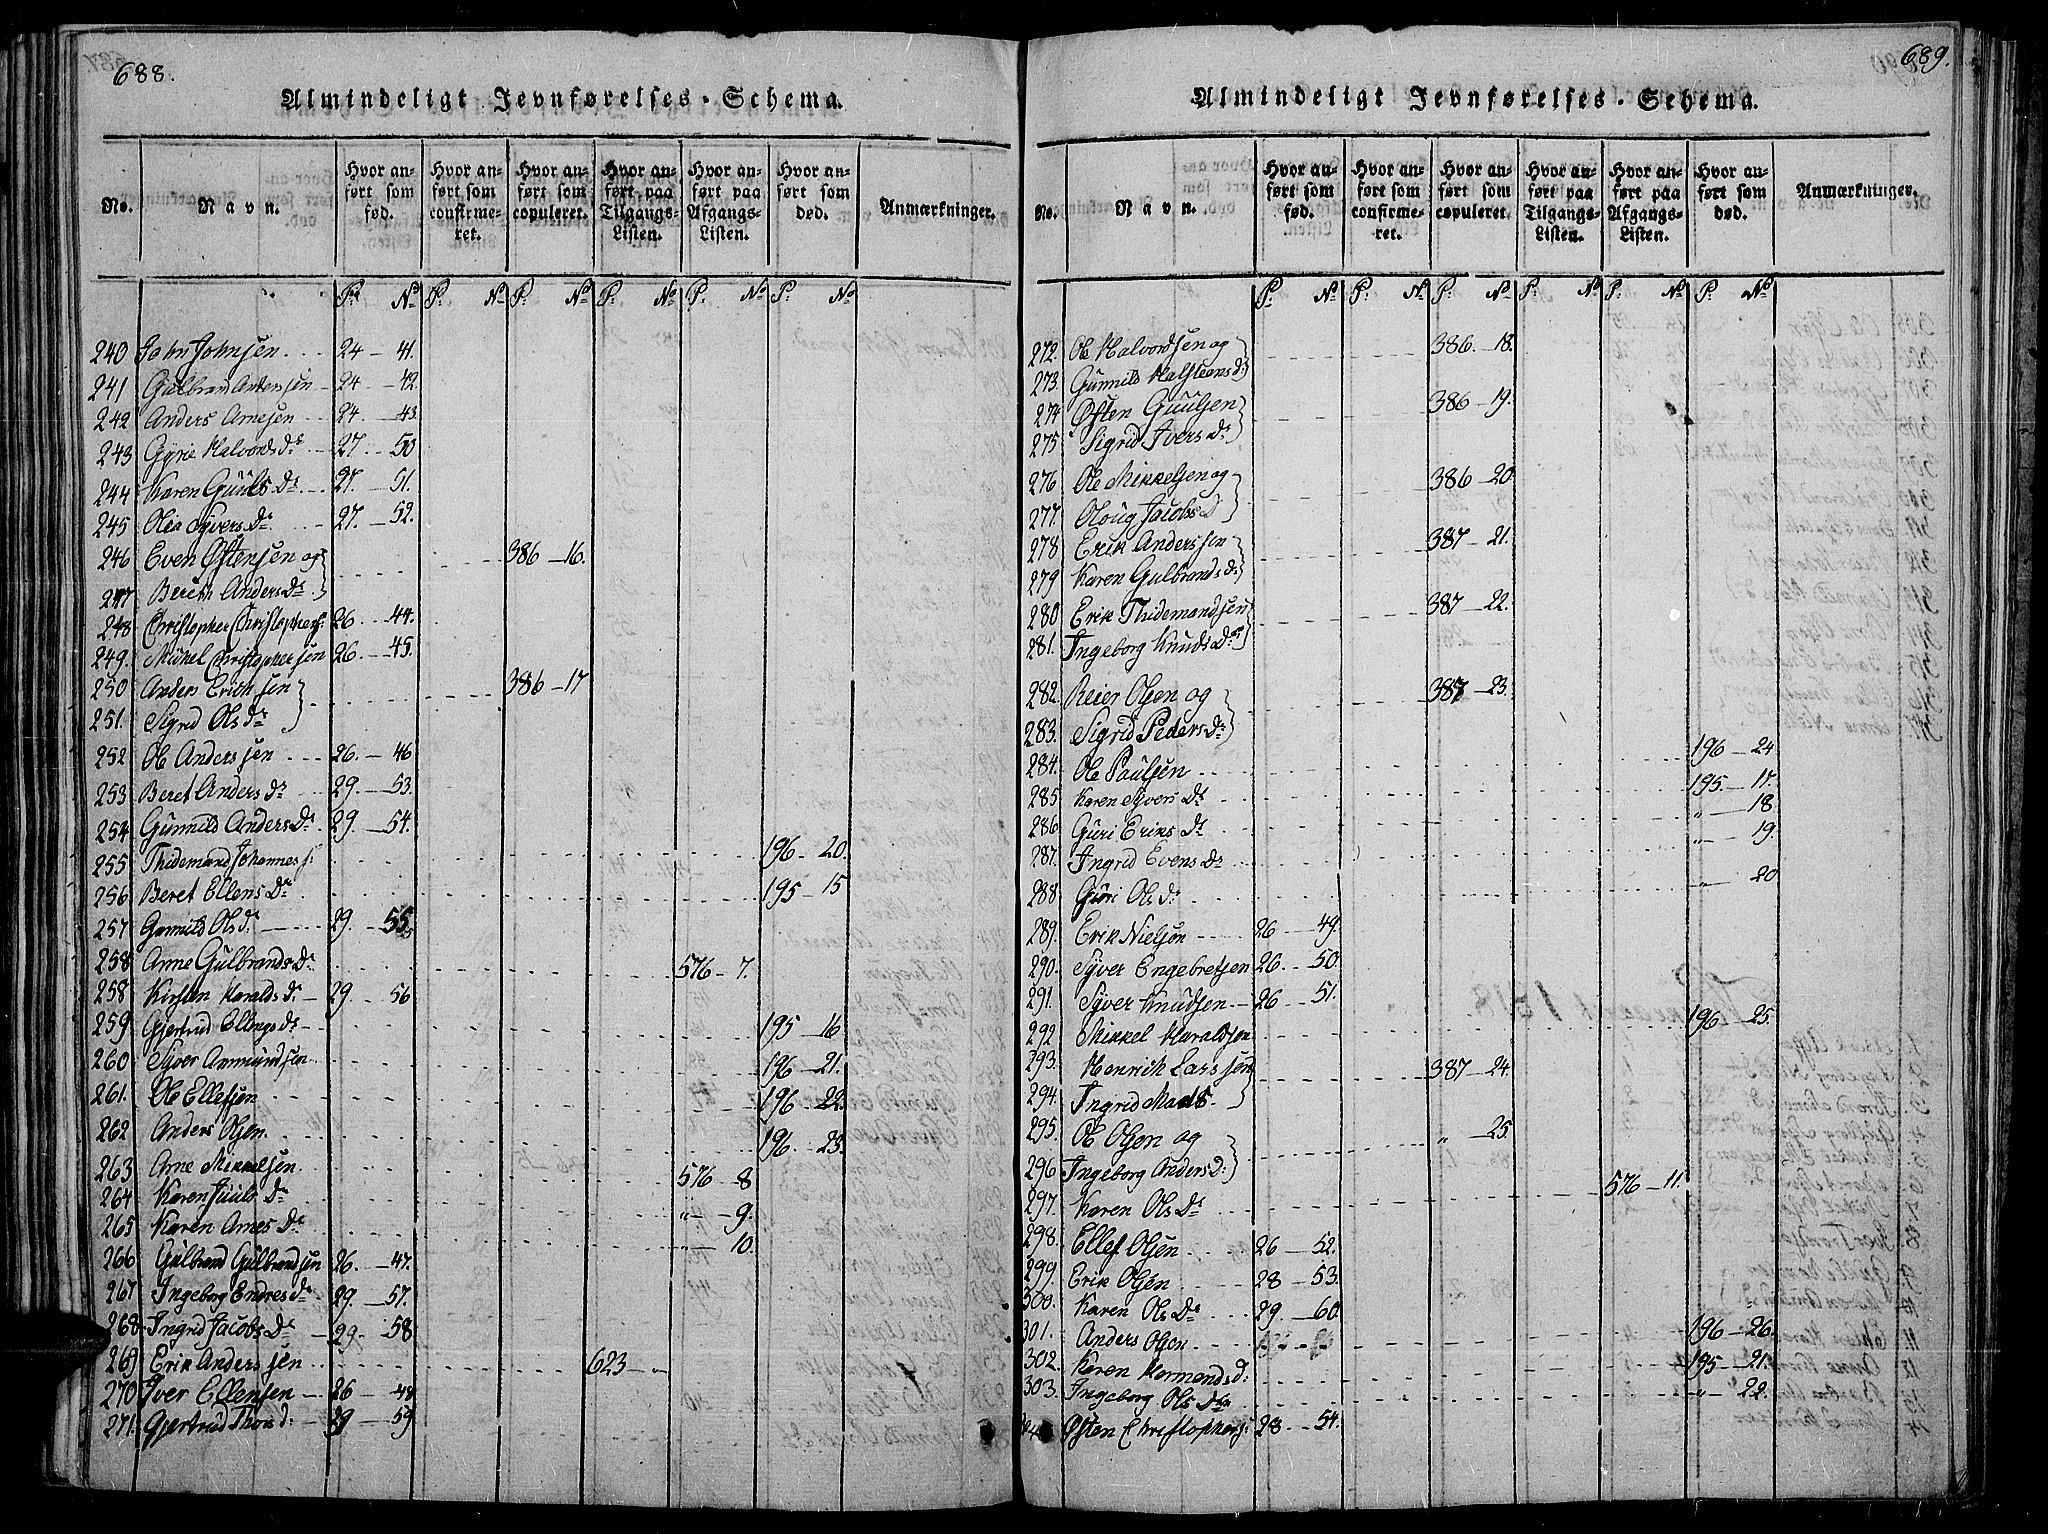 688.
Almindeligt Jevnførelses-Schema.
No. Navn. Hvor anført som fød. Hvor anført som confirmeret. Hvor anført som copuleret. Hvor anført paa Tilgangs-Listen. Hvor anført paa Afgangs-Listen. Hvor anført som død. Anmærkninger.
P. No P. No P. No P. No P. No P. No
240 John Johnsen 24 - 41.
241 Gulbrand Andersen 24 - 42.
242 Anders Arnesen 24 - 43.
243 Gyrie Halvords Dr. 27. - 50
244 Karen Guuls Dr. 27. - 51.
245 Olia Syvers Dr. 27. - 52.
246 Even Østensen og 386 - 16.
247 Bereth Anders Dr.
248 Christopher Christophers: 26 - 44.
249. Mikkel Christophersen 26. - 45.
250 Anders Erichsen 386 - 17
251. Sigrid Ols dr
252 Ole Anderssen 26. - 46
253 Beret Anders Dr 29. - 53.
254 Gunnild Anders Dr. 29. - 54.
255 Thidemand Johannes s: 196 - 20.
256 Beret Ellens Dr. 195 - 15
257 Gunnild Ols dr. 29. - 55
258 Anne Gulbrands Dr. 576 - 7.
258 Kirsten Haralds dr 29. - 56
259 Gjertrud Ellings dr 195 - 16
260 Syver Ammundsen 196 - 21.
261. Ole Ellefsøn 196 - 22.
262 Anders Olsen. 196 - 23.
263 Arne Mikkelsen 576 - 8
264 Karen Juuls Dr " - 9.
265 Karen Arnes Dr " - 10.
266 Gulbrand Gulbrandsen 26. - 47.
267 Ingeborg Endres Dr 29. - 57.
268 Ingrid Jacobs Dr 29. - 58
269 Erik Anderssen 623 - "
270 Iver Ellensen 26 - 48
271. Gjertrud Thors d: 29 - 59
689.
Almindeligt Jevnførelses-Schema.
No. Navn. Hvor anført som fød. Hvor anført som confirmeret. Hvor anført som copuleret. Hvor anført paa Tilgangs-Listen. Hvor anført paa Afgangs-Listen. Hvor anført som død. Anmærkninger.
P. No P. No P. No P. No P. No P. No
272. Ole Halvordsen og 386. 18.
273. Gunnild Halsteens d:
274 Østen Guulsen 386 - 19.
275 Sigrid Ivers Dr
276 Ole Mikkelsen og 386 - 20.
277. Oloug Jacobs D
278 Erik Anderssen 387 - 21.
279 Karen Gulbrands dr
280 Erik Thidemandsen 387 - 22.
281. Ingeborg Knuds Dr
282. Reier Olsen og 387 - 23.
283. Sigrid Peders Dr
284. Ole Paulsen 196 - 24.
285. Karen Syvers Dr 195. - 17.
286. Guri Eriks Dr " - 18.
287. Ingrid Evens Dr " - 19.
288 Guri Ols dr " - 20
289. Erik Nielsøn 26 - 49.
290. Syver Engebretsen 26. - 50.
291. Syver Knudsen 26 - 51.
292 Mikkel Haraldsen 196 - 25.
293. Henrich Larssen 387 - 24.
294. Ingrid Mads.
295. Ole Olsen og " - 25.
296 Ingeborg Anders D:
297. Karen Ols Dr. 576 - 11.
298. Ellef Olsen 26 - 52.
299. Erik Olsen 28 - 53.
300. Karen Ols Dr 29. - 60.
301. Anders Olsen 196 - 26.
302. Karen Hermands d: 195 - 21.
303. Ingeborg Ols Dr " - 22.
Østen Christophers: 28 - 54.